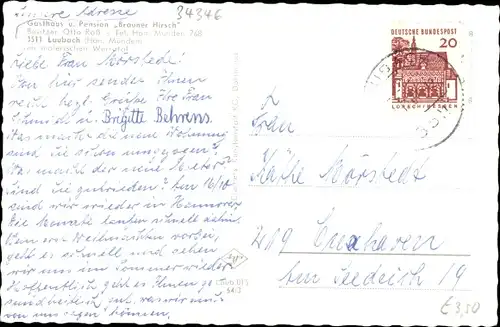 Unsere Adresse
34346
Gasthaus u. Pension „Brauner Hirsch"
Besitzer Otto Roß : Tel. Hann. Münden 768
3511 Laubach üb. Hann. Münden
im malerischen Werratal
Liebe Frau Mörstedt!
Von hier senden Ihnen
recht herzl. Grüße Ihre Frau
Schmidt u. Brigitte Behrens.
Was macht die neue Wohnung
sind Sie schon umgezogen?
Was macht der neue
sind Sie zufrieden? Am 16/10
sind wir wieder in Hannover
die Monate laufen schnell dahin.
Wenn erst Weihnachten vorbei,
geht es schnell und sehen
wir uns im Sommer wieder
Hoffentlich geht es Ihnen ge-
sundheitlich gut, was wir auch
von uns sagen können.
DEUTSCHE BUNDESPOST
20
LORSCH/HESSEN
Frau
Käthe Mörstedt
219 Cuxhaven
Am Seedeich 19
€3,50